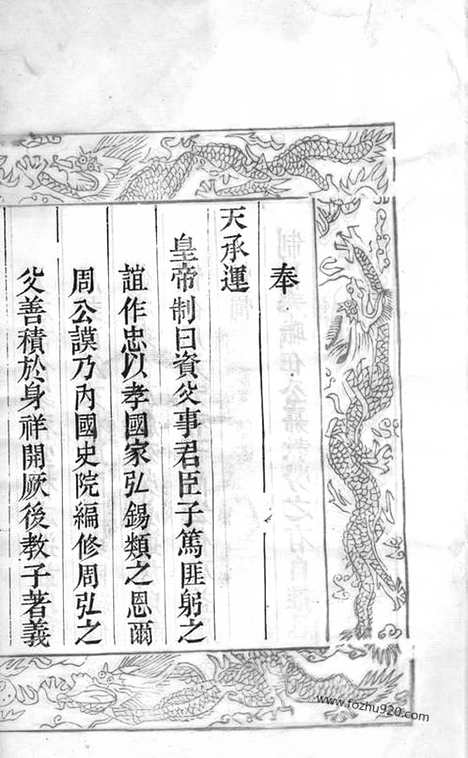 奉
天承運
皇帝制曰資父事君臣子篤匪躬之
誼作忠以孝國家弘錫類之恩爾
周公謨乃內國史院編修周弘之
父善積於身祥開厥後教子著義
www.fozhu920.com